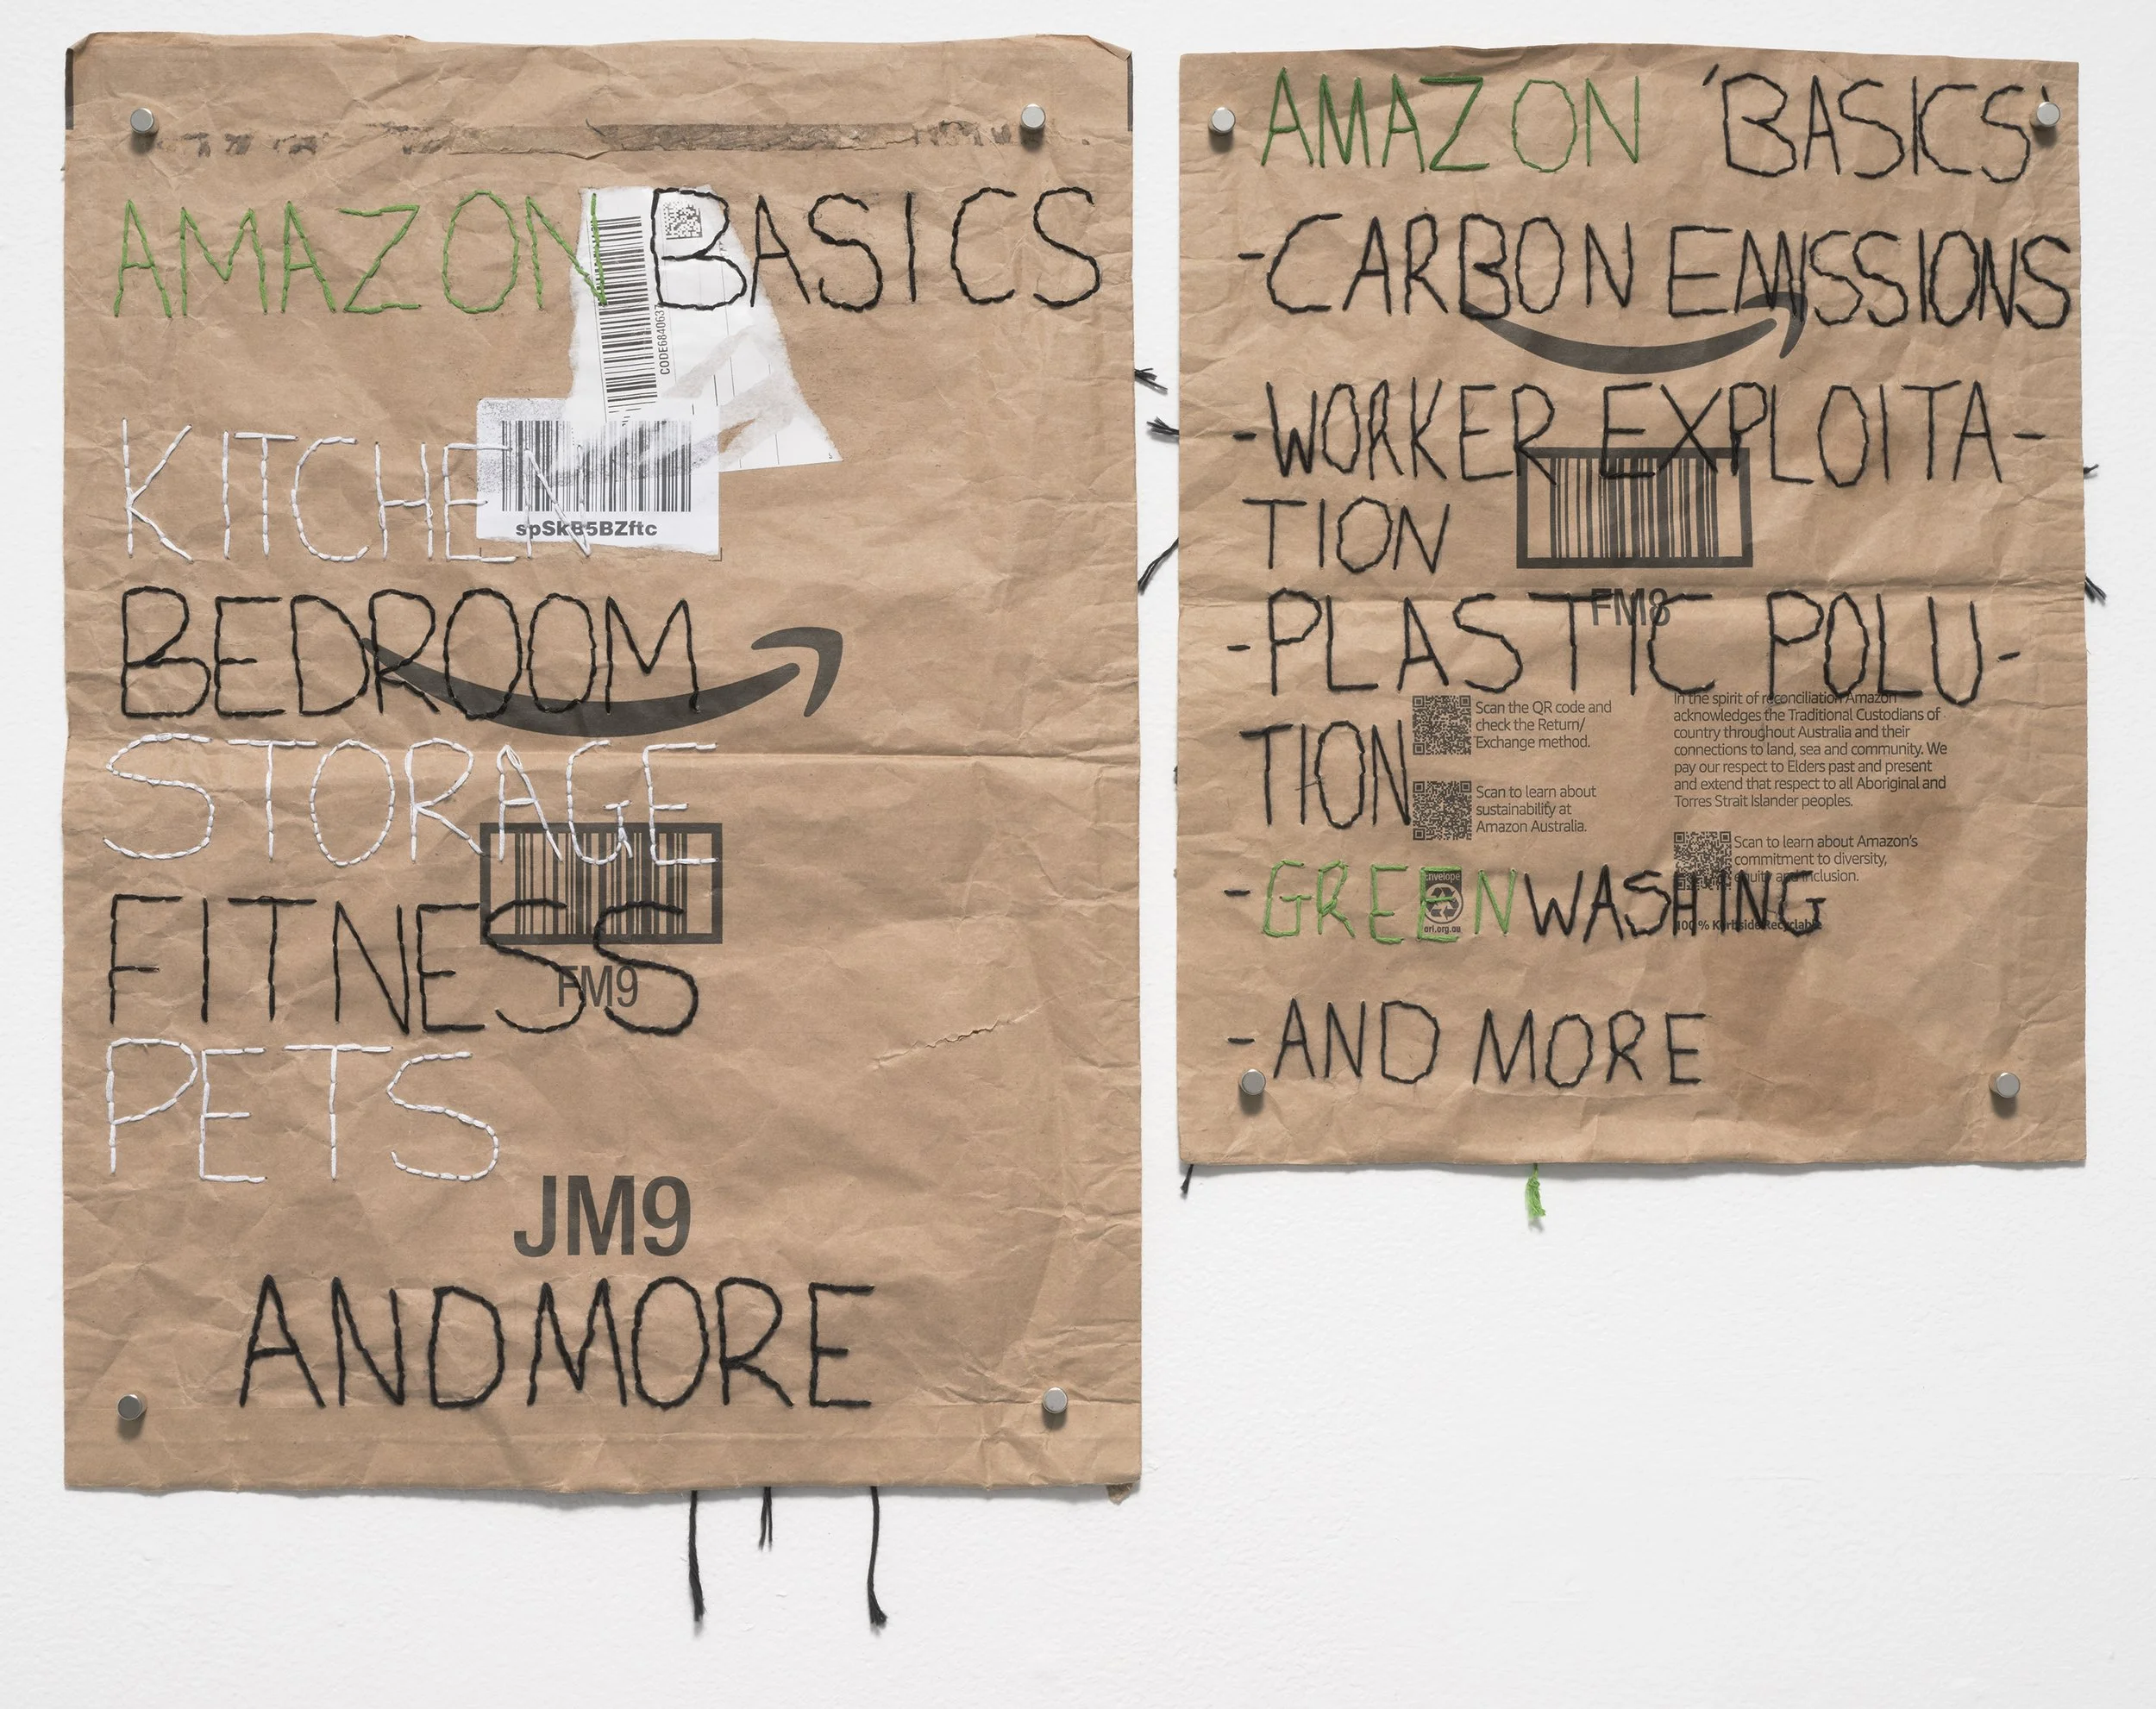 AMAZON BASICS
CODE684063
KITCHEN
spSkB5BZftc
BEDROOM
STORAGE
FITNESS
FM9
PETS
JM9
AND MORE
AMAZON 'BASICS'
-CARBON EMISSIONS
-WORKER EXPLOITA-
TION
FM8
-PLASTIC POLU-
TION
Scan the QR code and
check the Return/
Exchange method.
Scan to learn about
sustainability at
Amazon Australia.
In the spirit of reconciliation Amazon
acknowledges the Traditional Custodians of
country throughout Australia and their
connections to land, sea and community. We
pay our respect to Elders past and present
and extend that respect to all Aboriginal and
Torres Strait Islander peoples.
Scan to learn about Amazon's
commitment to diversity,
equity and inclusion.
Envelope
arl.org.au
100% Kerbside Recyclable
-GREENWASHING
-AND MORE